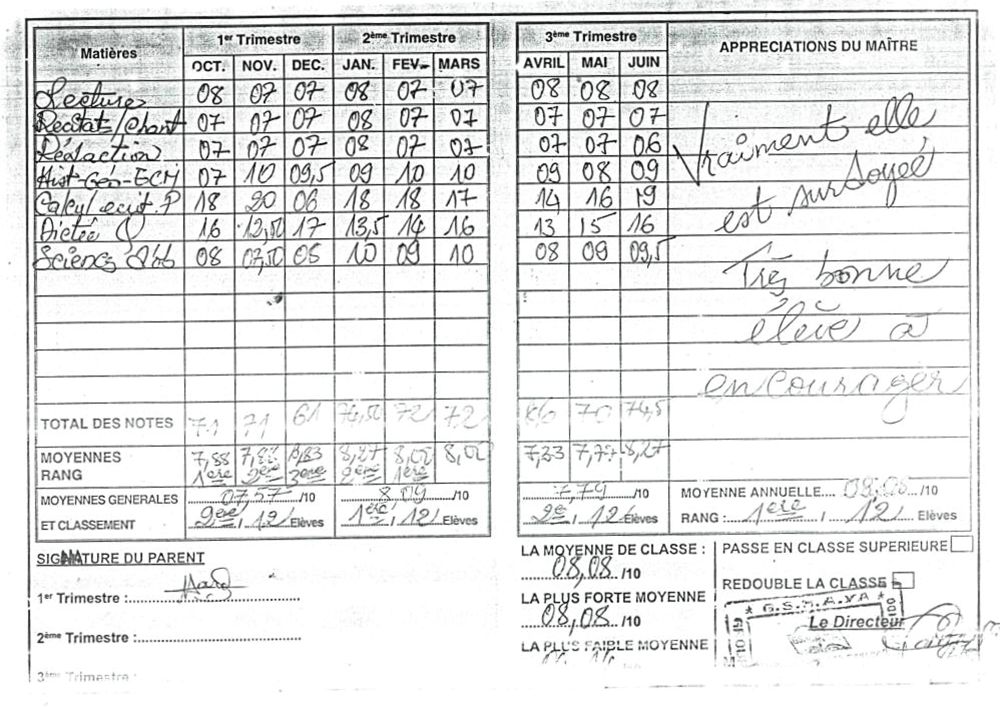 Matières 1er Trimestre 2ème Trimestre 3ème Trimestre APPRECIATIONS DU MAÎTRE
OCT. NOV. DEC. JAN. FEV. MARS AVRIL MAI JUIN
Lecture 08 07 07 08 07 07 08 08 08
Recitat/chant 07 07 07 08 07 07 07 07 07
Rédaction 07 07 07 08 07 07 07 07 06
Hist-Géo-ECM 07 10 09,5 09 10 10 09 08 09
Calcul ecrit.P 18 20 06 18 18 17 14 16 19
Dictée Q 16 12,50 17 13,5 14 16 13 15 16
Sciences 08 07,50 05 10 09 10 08 09 09,5
Vraiment elle
est sur
Très bonne
élève à
encourager
TOTAL DES NOTES 71 71 61 74,50 72 72 70 74,5
MOYENNES 7,88 8,27 8,00 8,00 7,33 7,77 8,27
RANG 1ere 2eme 3eme 2eme 1ere
MOYENNES GENERALES 07,57 /10 8,09 /10 7,79 /10 MOYENNE ANNUELLE.... /10
ET CLASSEMENT 2eé / 12 Elèves 1ere / 12 Elèves 2e / 12 Elèves RANG : 1ère / 12 Elèves
SIGNATURE DU PARENT
1er Trimestre :
2ème Trimestre :
3ème Trimestre :
LA MOYENNE DE CLASSE :
08,08 /10
LA PLUS FORTE MOYENNE
08,08 /10
LA PLUS FAIBLE MOYENNE
PASSE EN CLASSE SUPERIEURE
REDOUBLE LA CLASSE
Le Directeur